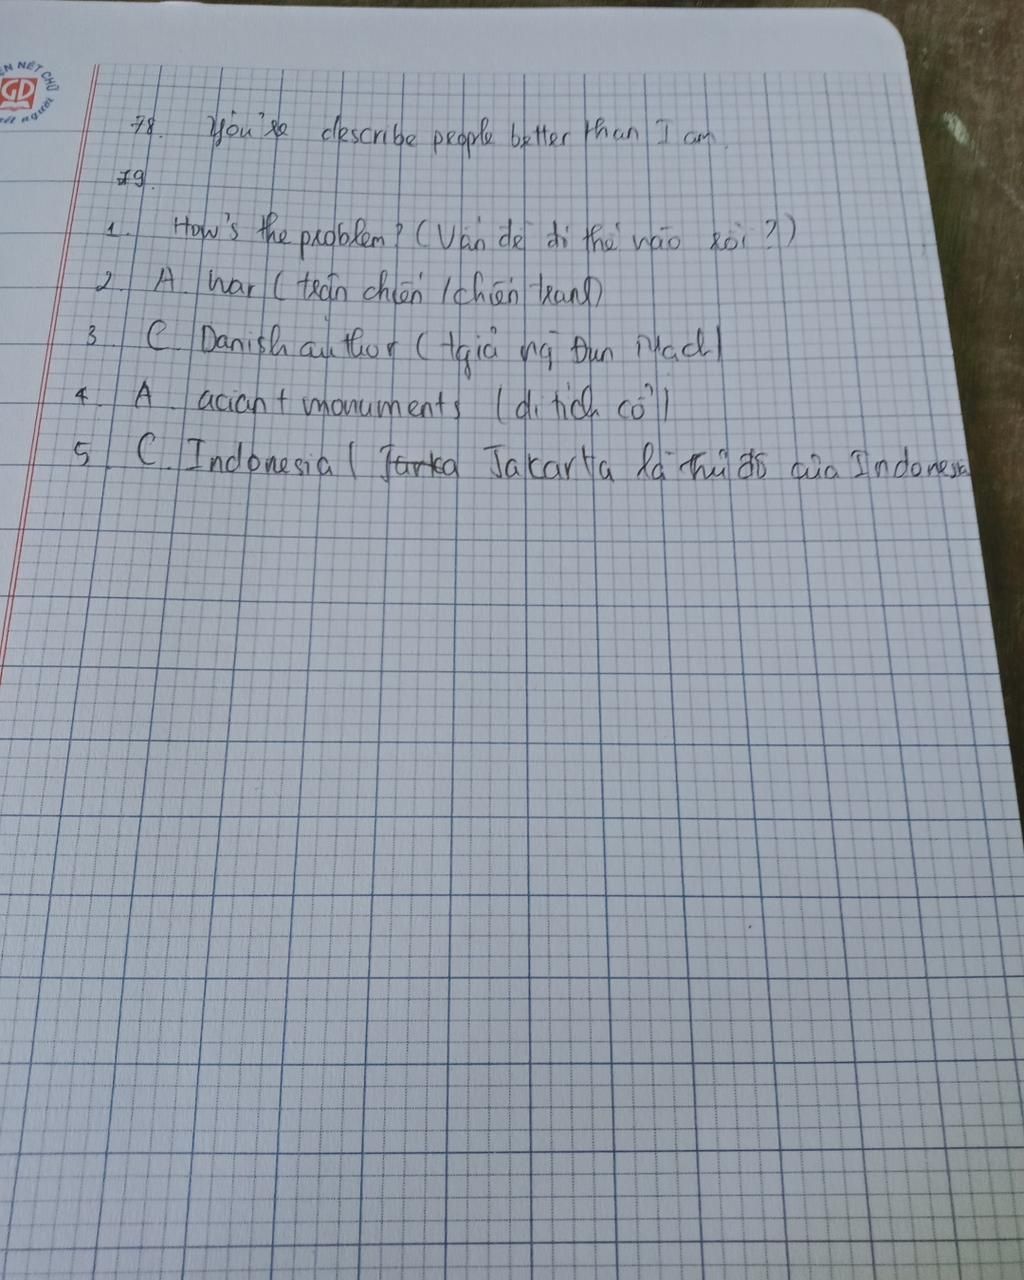 GD
78. You're describe people better than I am.
79.
1. How's the problem? (Vấn đề đi thế nào rồi?)
2. A war (trận chiến / chiến tranh)
3 C. Danish author (tgiả ng Đan Mạch)
4. A aciant monuments (di tích cổ)
5 C. Indonesia ( Jarka Jakarta là thủ đô của Indonesia